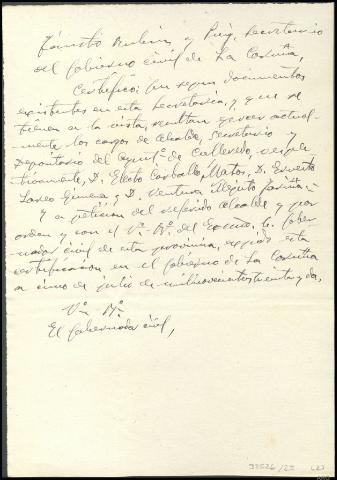 Fausto Rubin y Puig, Secretario
del Gobierno civil de La Coruña,
Certifico: que segun documentos
existentes en esta Secretaria, y que se
tienen a la vista, resultan ejercer actual-
mente los cargos de Alcalde, Secretario y
Depositario del Ayunt.º de Culleredo, respec-
tivamente, D. Electo Carballo Matos, D. Ernesto
y D. Ventura García.-
Y a peticion del referido Alcalde y por
orden y con el Vº. Bº. del Excmo. Sr. Gober-
nador civil de esta provincia, expido esta
certificación en el Gobierno de La Coruña
a cinco de julio de mil novecientos treinta y dos,
Vº. Bº.
El Gobernador civil,